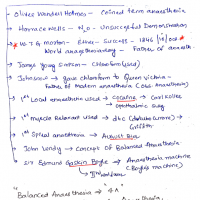 → Oliver Wendell Holmes - Coined term anaesthesia
→ Horace Wells - N₂O - Unsuccessful Demonstration
→ W.T.G Morton - Ether - Success - 1846 16/oct
World anaesthesia day - Father of anaesth.
→ James Young Simpson - Chloroform (used)
→ John Snow → gave chloroform to Queen Victoria -
Father of Modern anaesthesia
→ 1st Local anaesthetic used → cocaine → Carl Koller
Ophthalmic surg
→ 1st Muscle Relaxant used → dtc (d-tubo Curare)
Griffith
→ 1st Spinal anaesthesia → August Bier
→ John Lundy → Concept of Balanced Anaesthesia
→ Sir Edmund Gaskin Boyle → Anaesthesia machine
(Boyle's machine)
"Balanced Anaesthesia" → "4A"